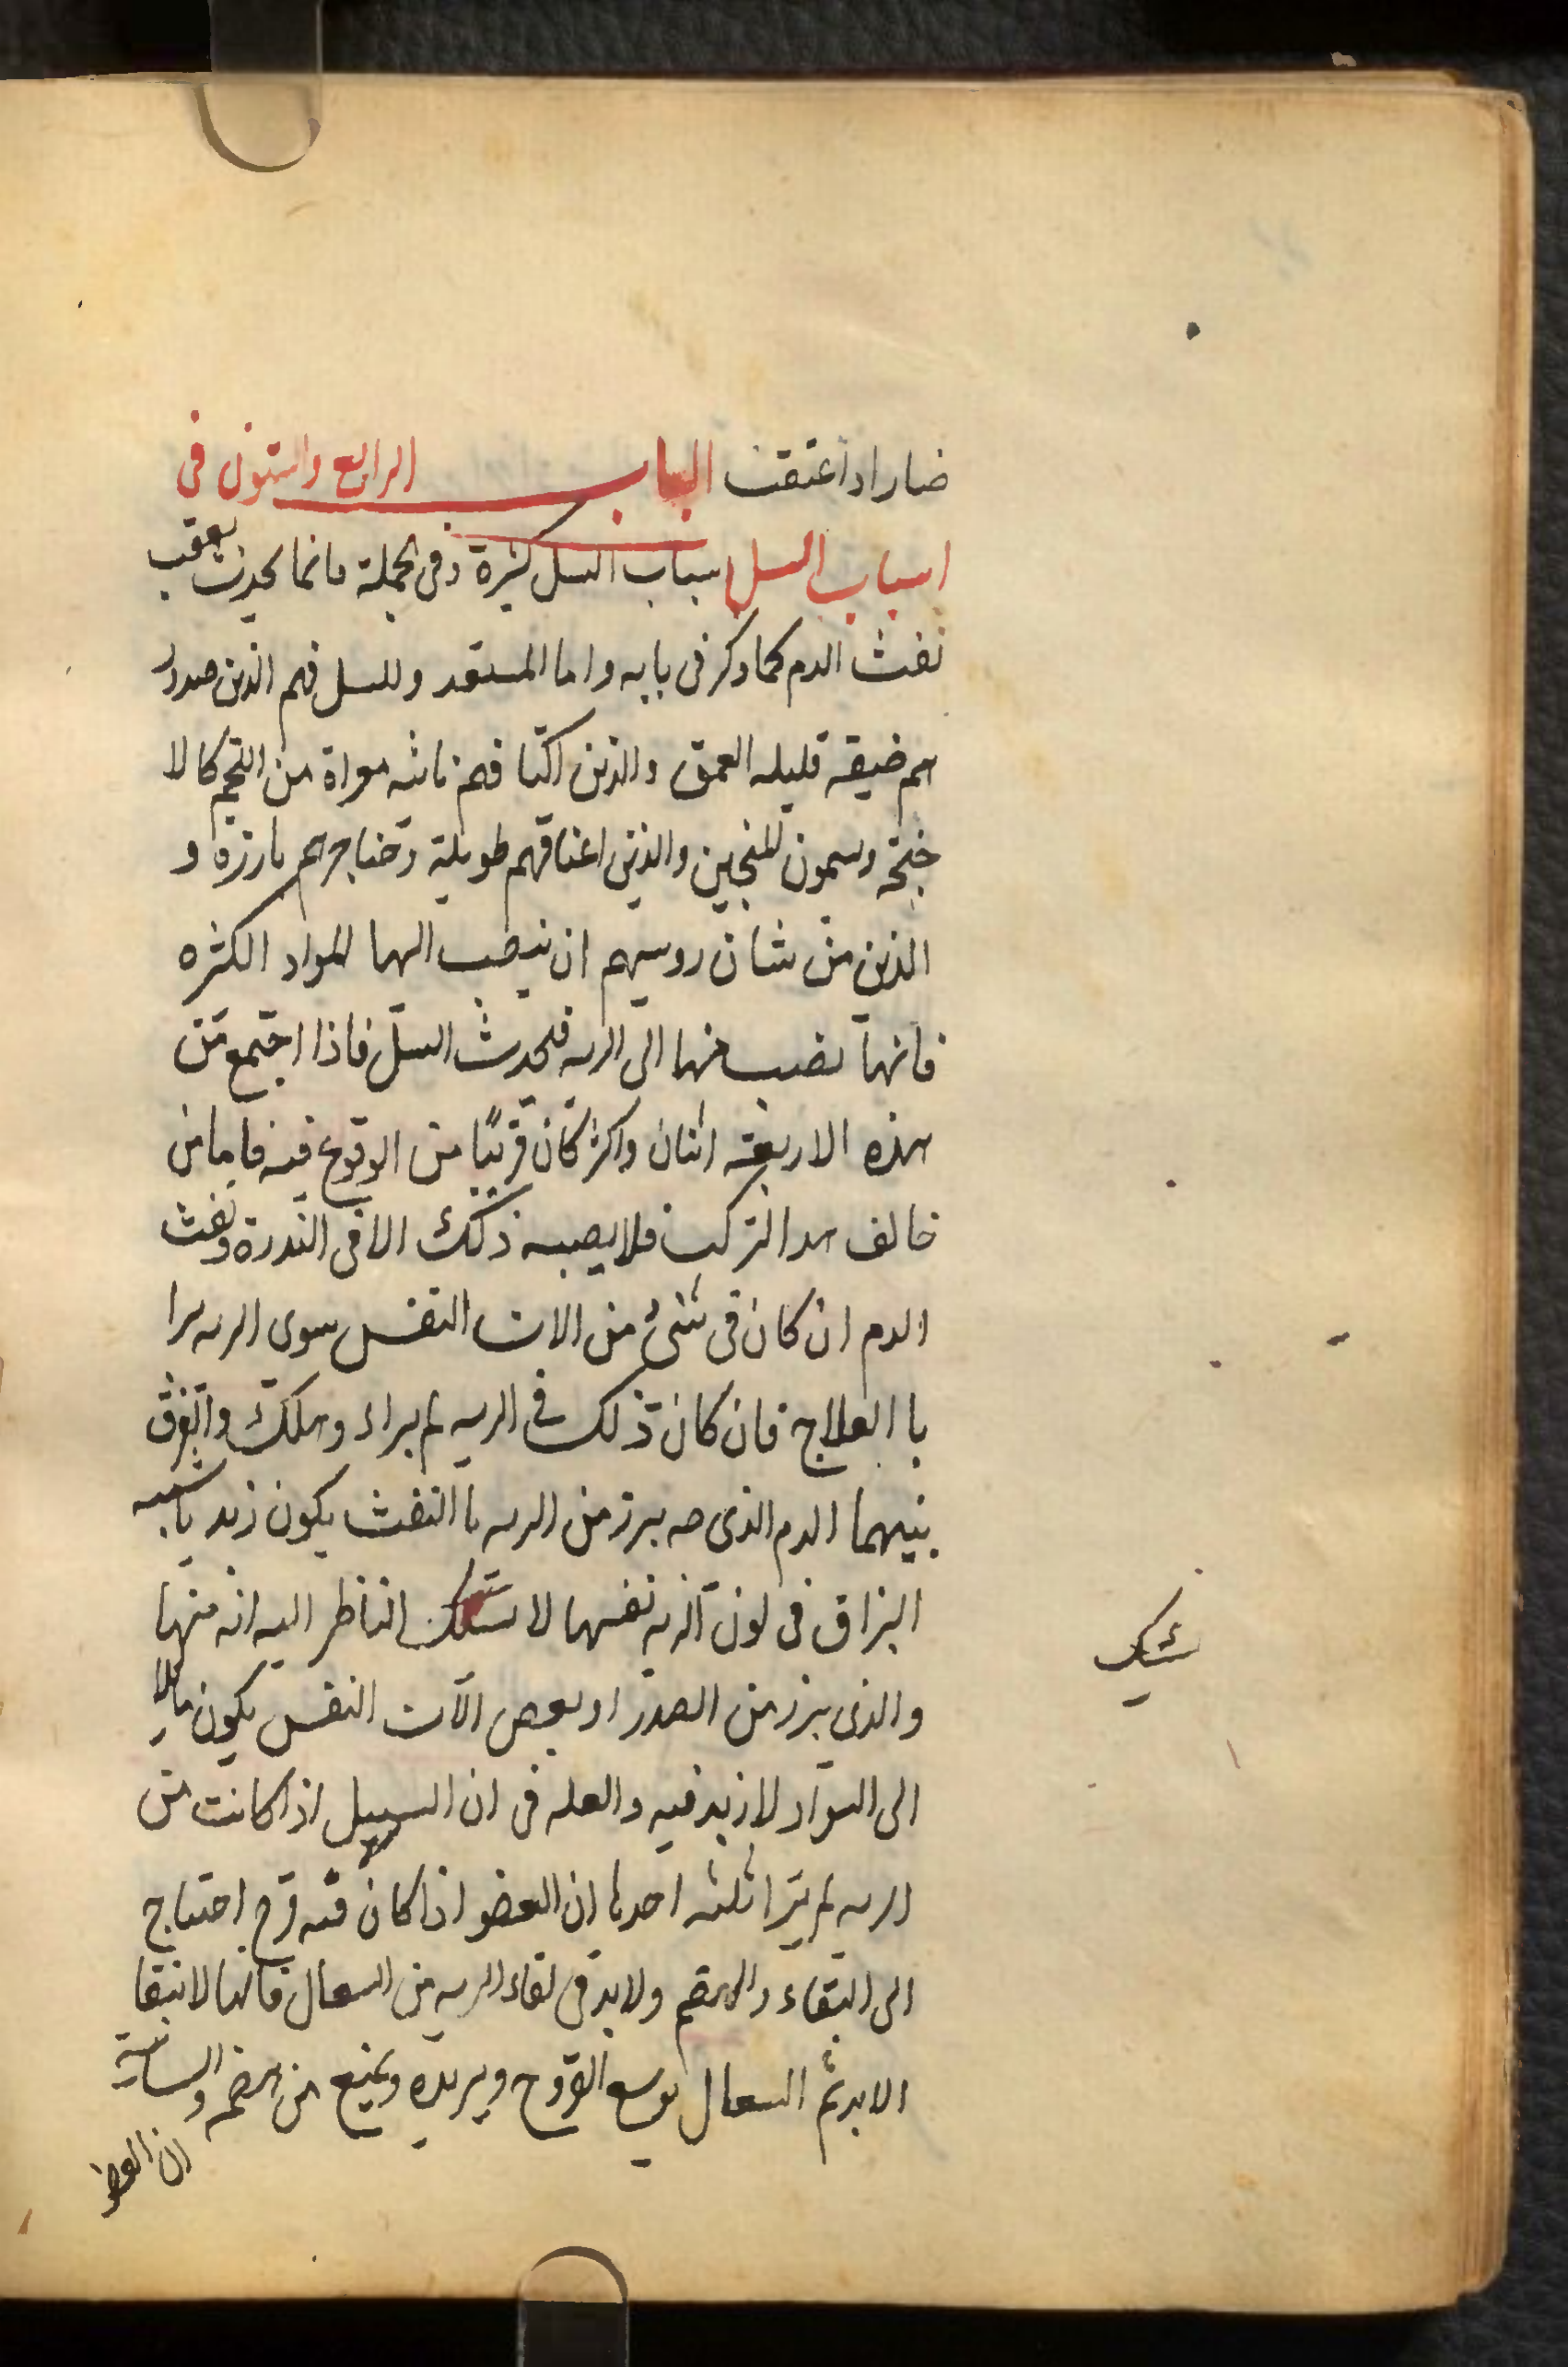 ضار اذا عتقت الباب الرابع والستون فى
اسباب السل اسباب السل كثيرة وفى الجملة فانما يحدث بعقب
نفث الدم كما ذكر فى بابه واما المستعد وللسل فهم الذين صدور
هم ضيقه قليله العمق والذين اكتا فهم ناتئه معراة من اللحم كالا
جنحه ويسمون المنجحين والذين اعناقهم طويلة وحناجرهم بارزه و
الذين من شان روسهم ان ينصب الها المواد الكثره
فانها تصب منها الى الريه فيحدث السل فاذا اجتمع من
هذه الاربعه اثنان واكثر كان قريبًا من الوقوع فيه فاما من
خالف هدا التركيب فلا يصيبه ذلك الا فى الندرة ونفث
الدم ان كان فى شىء من الات التنفس سوى الريه برا
با العلاج فان كان ذلك فى الريه لم يبراء وهلك والفرق
بينهما الدم الذى يبرز من الريه با النفث يكون زبد يا شبيه
البزاق فى لون الريه نفسها لا يشك الناظر اليه انه منها
شك
والذى يبرز من الصدر او بعض الآت النفس يكون مايلا
الى السواد لا زبد فيه والعله فى ان السل اذا كانت من
الريه لم يبرا ثلثه احدها ان العضو اذا كان فيه قرح احتاج
الى النقاء والهضم ولابد فى نقاء الريه من السعال فانها لا تنقا
الا به ثم السعال يوسع القروح ويزيده ويمنع من هضمه والثانية
ان العضو